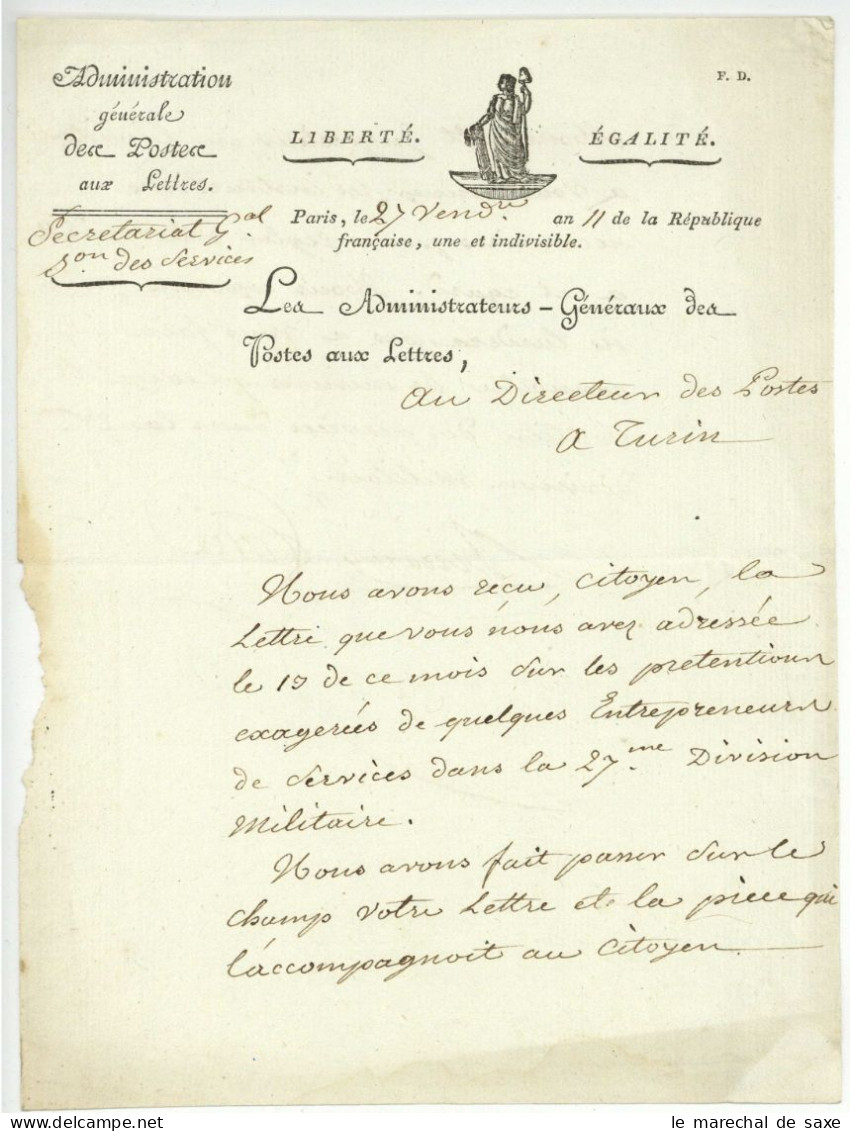 Administration
générale
des Postes
aux Lettres.
F. D.
LIBERTÉ.
ÉGALITÉ.
Secretariat Gal
Son des Services
Paris, le 27 Vendre. an 11 de la République
française, une et indivisible.
Les Administrateurs-Généraux des
Postes aux Lettres,
Au Directeur des Postes
A Turin
Nous avons reçu, Citoyen, la
Lettre que vous nous avez adressée
le 19 de ce mois sur les pretentions
exagerées de quelques Entrepreneurs
de Services dans la 27.me Division
Militaire.
Nous avons fait passer sur le
champ votre Lettre et la piece qui
l'accompagnoit au Citoyen
le marechal de saxe